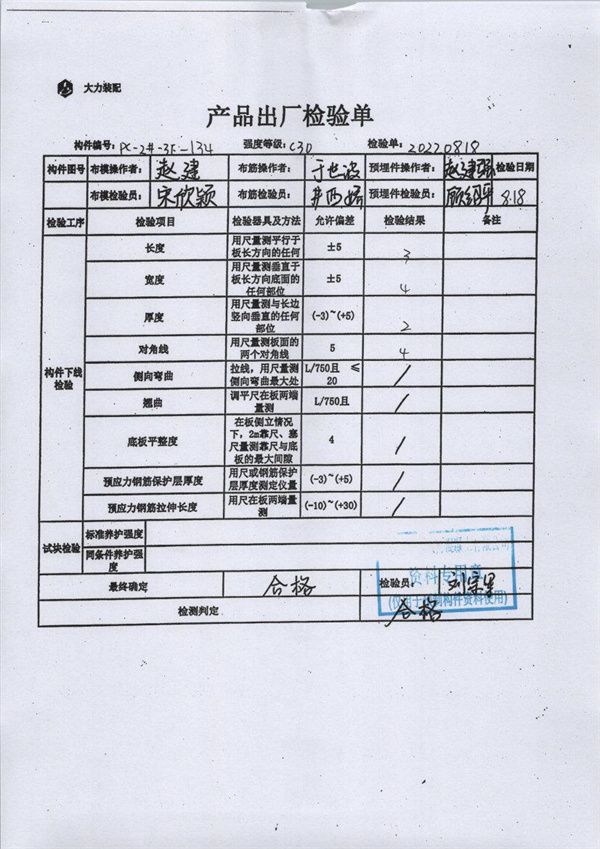 大力装配
产品出厂检验单
构件编号: PC-2#-3F-134 强度等级: C30 检验单: 20220818
构件图号 布模操作者: 赵建 布筋操作者: 于世波 预埋件操作者: 赵建强 检验日期
布模检验员: 宋欣颖 布筋检验员: 预埋件检验员: 8.18
检验工序 检验项目 检验器具及方法 允许偏差 检验结果 备注
构件下线检验
长度 用尺量测平行于板长方向的任何 ±5 3
宽度 用尺量测垂直于板长方向底面的任何部位 ±5 4
厚度 用尺量测与长边竖向垂直的任何部位 (-3)~(+5) 2
对角线 用尺量测板面的两个对角线 5 4
侧向弯曲 拉线，用尺量测侧向弯曲最大处 L/750且 ≤20 /
翘曲 调平尺在板两端量测 L/750且 /
底板平整度 在板侧立情况下，2m靠尺、塞尺量测靠尺与底板的最大间隙 4 /
预应力钢筋保护层厚度 用尺或钢筋保护层厚度测定仪量 (-3)~(+5) /
预应力钢筋拉伸长度 用尺在板两端量测 (-10)~(+30) /
试块检验 标准养护强度
同条件养护强度
最终确定 合格 检验员:
检测判定 合格
资料专用章
构件资料使用)